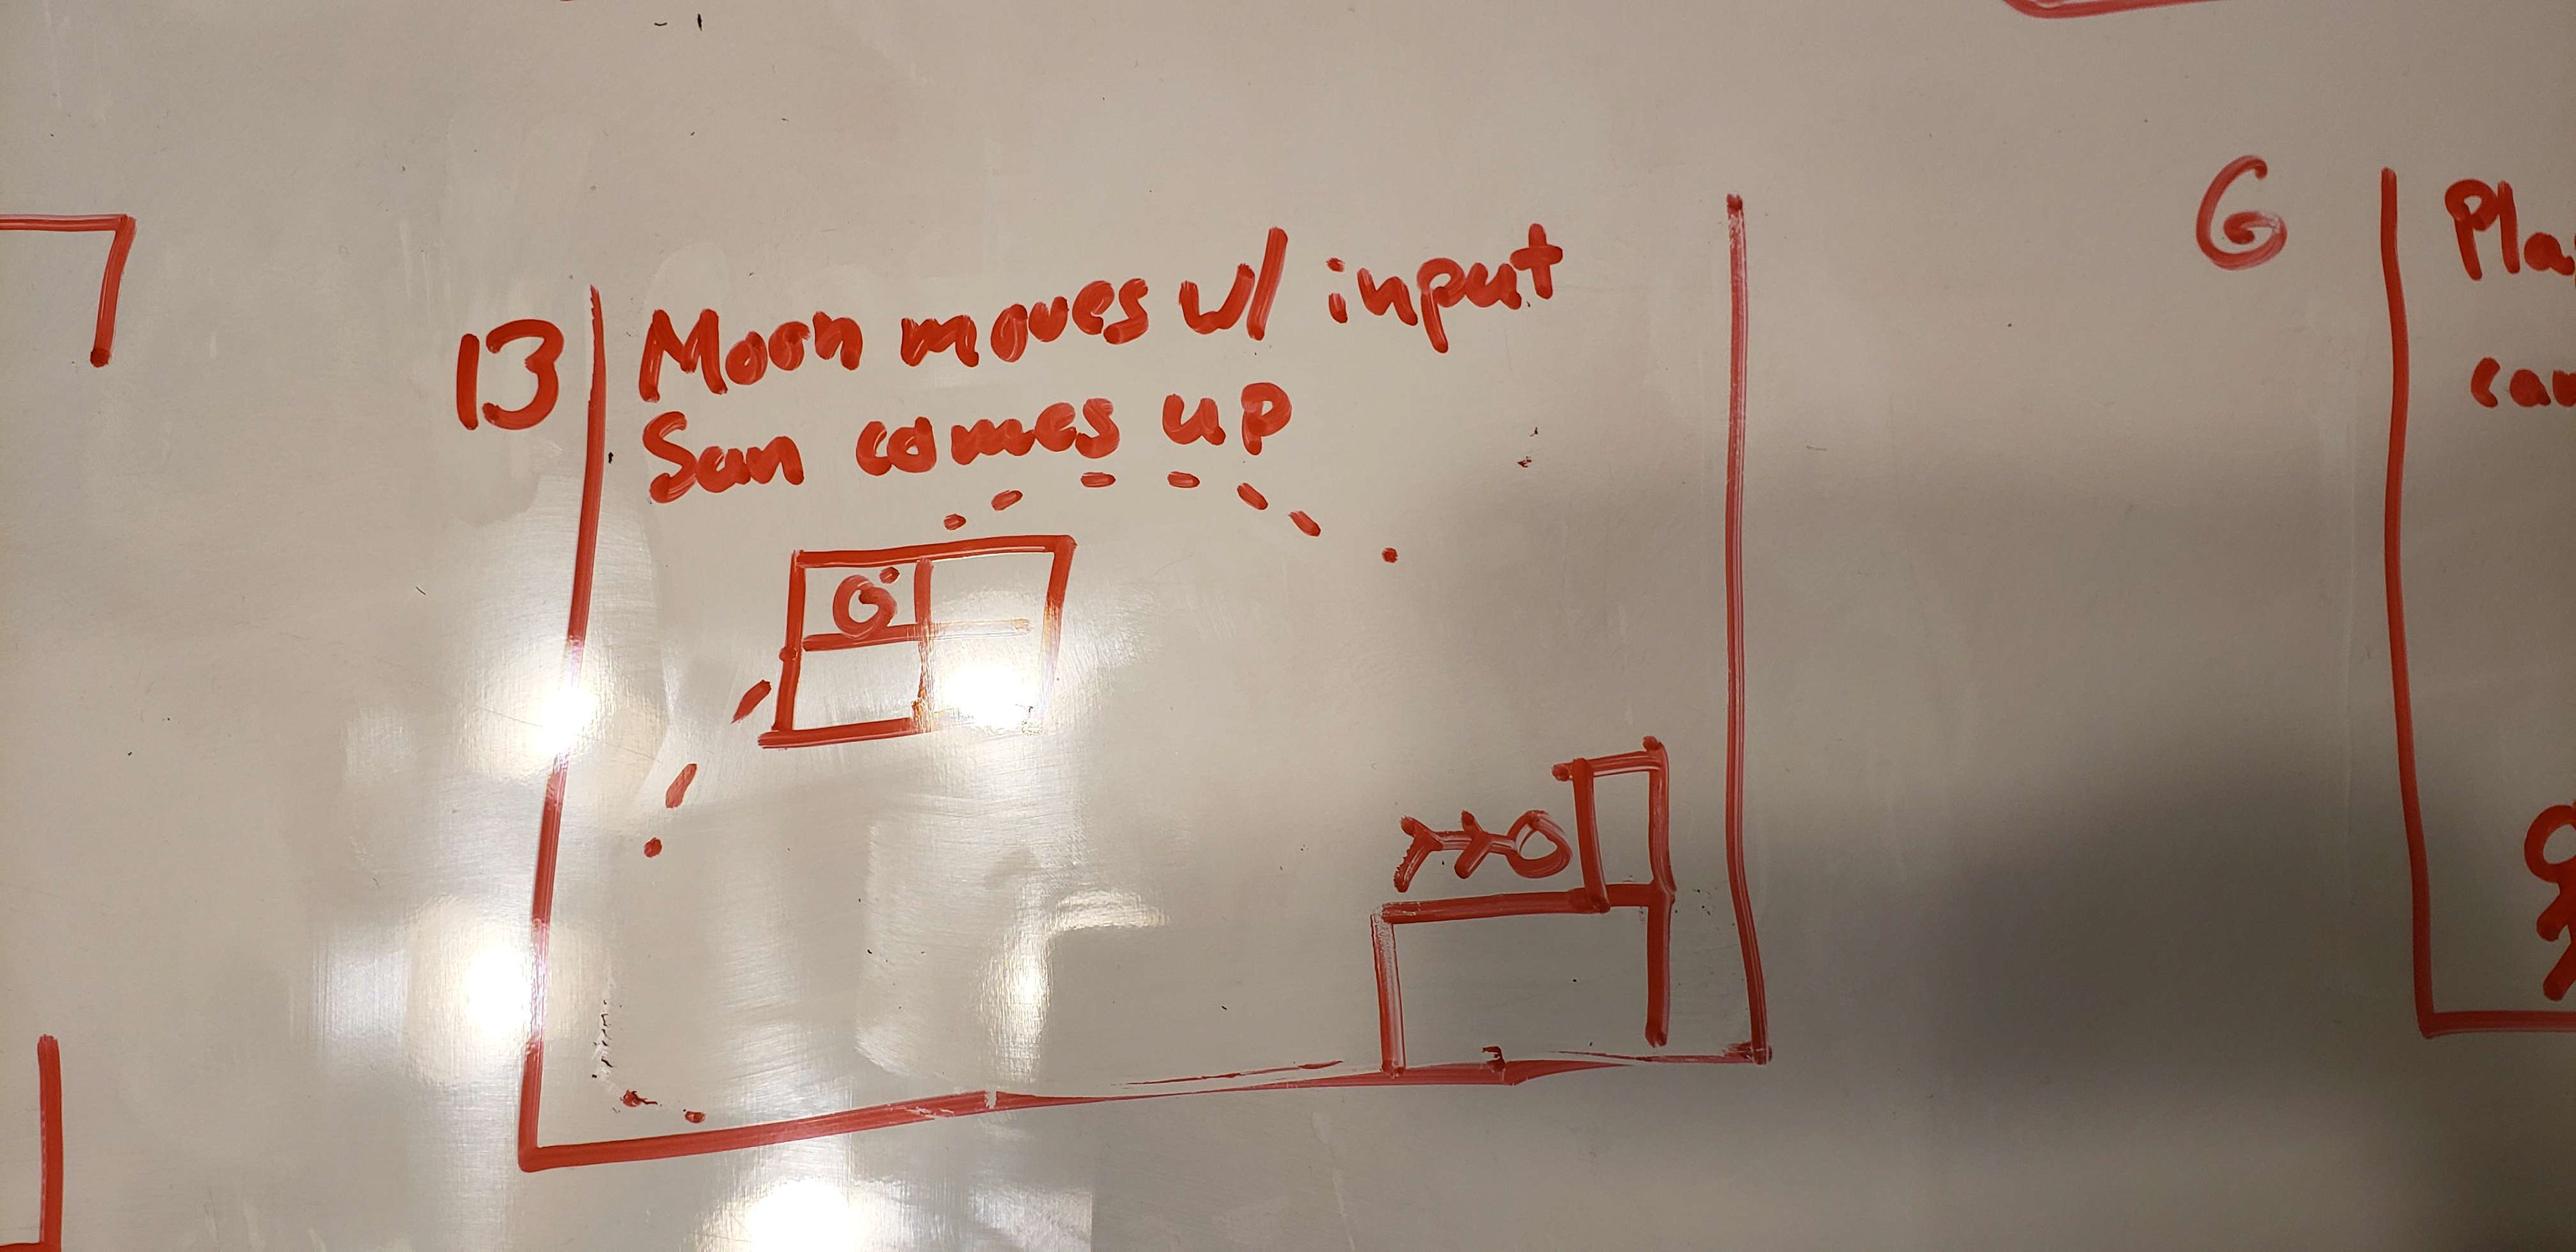 13
Moon moves w/ input
Sun comes up
6
Pla
can